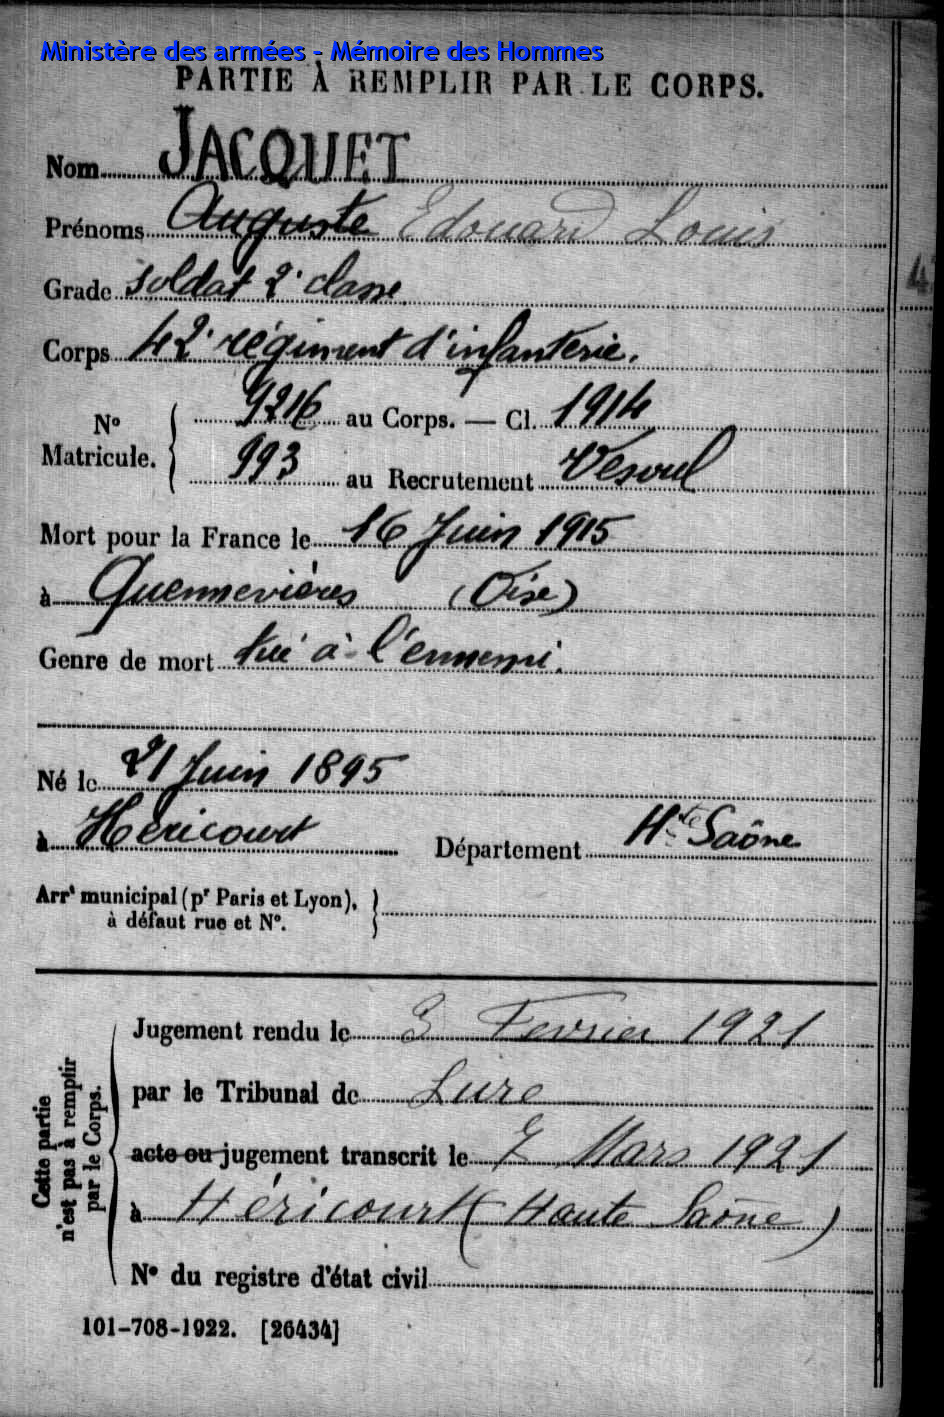 Ministère des armées - Mémoire des Hommes
PARTIE À REMPLIR PAR LE CORPS.
Nom JACQUET
Prénoms Auguste Edouard Louis
Grade soldat 2e classe
Corps 42e régiment d'infanterie.
No Matricule. { 9216 au Corps. — Cl. 1914
993 au Recrutement Vesoul
Mort pour la France le 16 Juin 1915
à Quennevières (Oise)
Genre de mort tué à l'ennemi.
Né le 21 Juin 1895
à Héricourt Département Hte Saône
Arrt municipal (pr Paris et Lyon), }
à défaut rue et No.
Cette partie
n'est pas à remplir
par le Corps.
Jugement rendu le 3 Fevrier 1921
par le Tribunal de Lure
acte ou jugement transcrit le 7 Mars 1921
à Héricourt (Haute Saône)
No du registre d'état civil
101-708-1922. [26434]